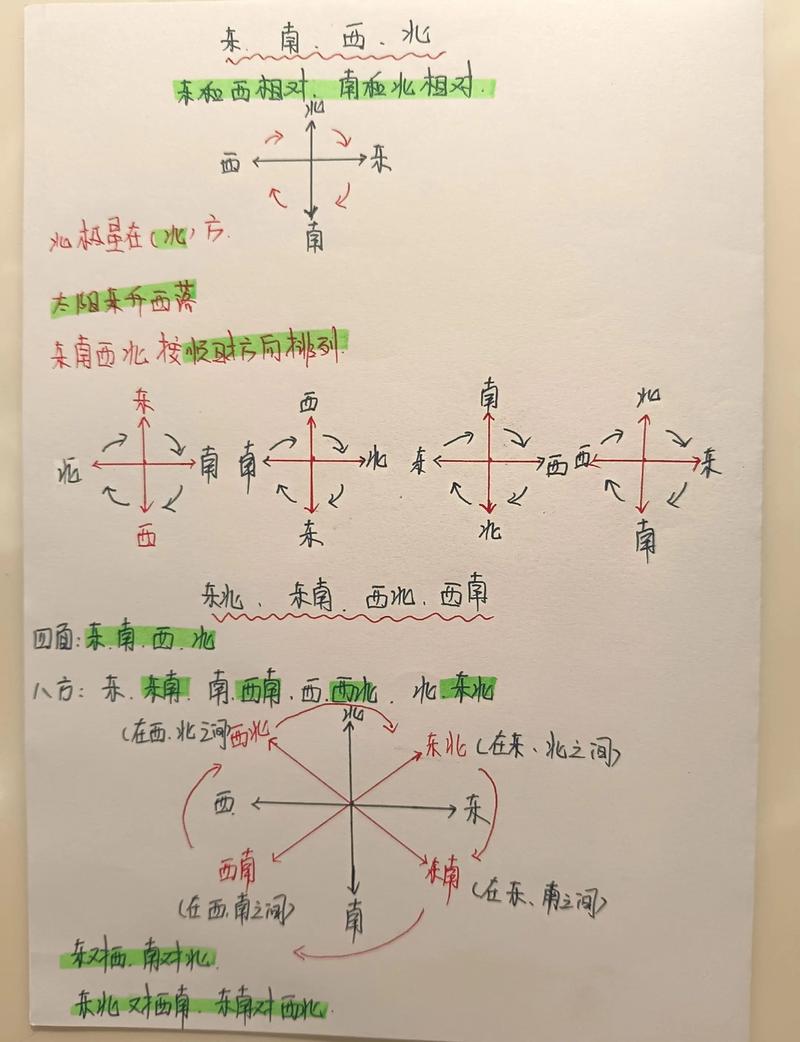 东、南、西、北
东和西相对、南和北相对.
北
西 东
南
北极星在(北)方.
太阳东升西落
东南西北按顺时方向排列.
东 西 南 北
北 南 南 北 东 西 西 东
西 东 北 南
东北、东南、西北、西南
四面:东.南.西.北
八方:东.东南.南.西南.西.西北.北.东北
北
(在西.北之间)西北 东北(在东、北之间)
西 东
西南 东南
(在西.南之间) 南 (在东、南之间)
东对西.南对北.
东北对西南.东南对西北.